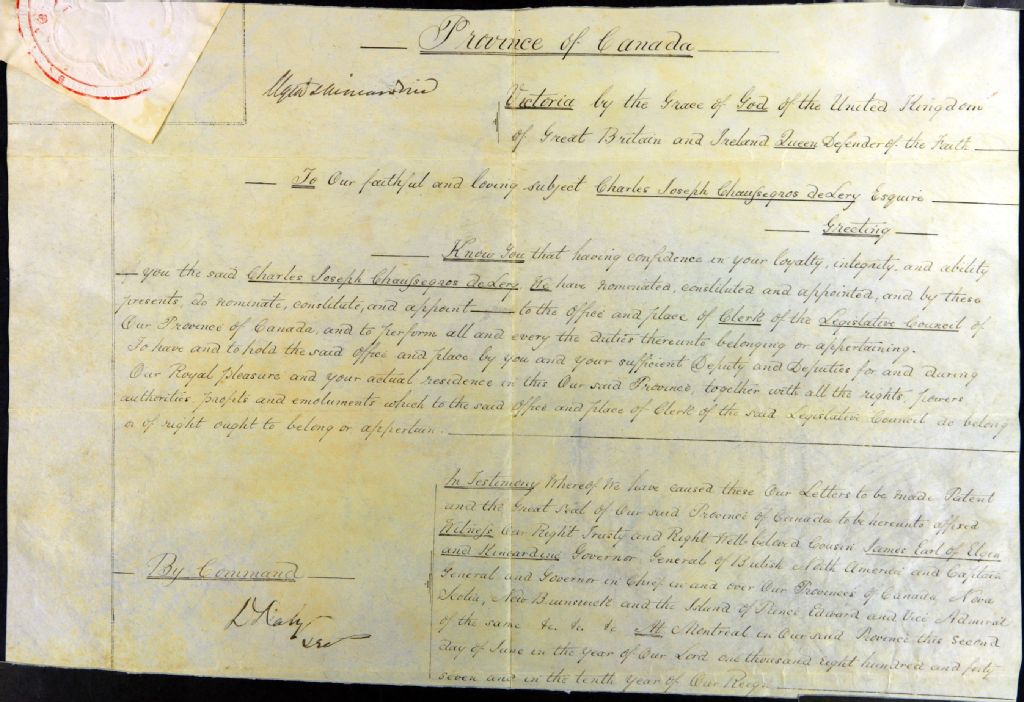 Province of Canada
Elgin & Kincardine
Victoria by the Grace of God of the United Kingdom
of Great Britain and Ireland Queen Defender of the Faith
To Our faithful and loving subject Charles Joseph Chaussegros deLery Esquire
Greeting
Know You that having confidence in your loyalty, integrity, and ability
you the said Charles Joseph Chaussegros deLery, We have nominated, constituted and appointed, and by these
presents, do nominate, constitute, and appoint to the Office and place of Clerk of the Legislative Council of
Our Province of Canada, and to perform all and every the duties thereunto belonging or appertaining.
To have and to hold the said Office and place by you and your sufficient Deputy and Deputies for and during
Our Royal pleasure and your actual residence in this Our said Province, together with all the rights, powers
authorities, profits and emoluments which to the said Office and place of Clerk of the said Legislative Council do belong
or of right ought to belong or appertain.
In Testimony Whereof We have caused these Our Letters to be made Patent
and the Great Seal of Our said Province of Canada to be hereunto affixed
Witness Our Right Trusty and Right Well-beloved Cousin James Earl of Elgin
and Kincardine Governor General of British North America and Captain
General and Governor in Chief in and over Our Provinces of Canada, Nova
Scotia, New Brunswick and the Island of Prince Edward and Vice Admiral
of the same &c. &c. &c. At Montreal in Our said Province this Second
day of June in the year of Our Lord one thousand eight hundred and forty
seven and in the tenth year of Our Reign
By Command
D Daly
Sec